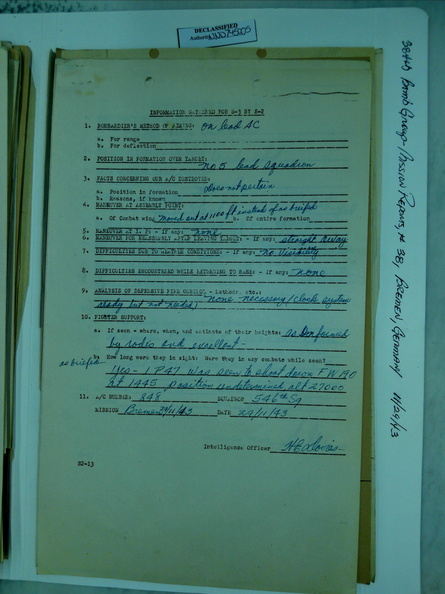 DECLASSIFIED
Authority NND 745005
384th Bomb Group - Mission Reports, # 38, BREMEN, GERMANY 11/29/43
INFORMATION REQUIRED FOR S-3 BY S-2
1. BOMBARDIER'S METHOD OF AIMING: on lead AC
a. For range
b. For deflection
2. POSITION IN FORMATION OVER TARGET:
No 5 lead squadron
3. FACTS CONCERNING OUR A/C
a. Position in formation Does not pertain
b. Reasons, if known
4. MANEUVER AT ASSEMBLY POINT:
a. Of Combat wing moved out at 1100 ft instead of as briefed b. Of entire formation
5. MANEUVER AT I. P. - if any: none
6. MANEUVER FOR AFTER LEAVING TARGET: - if any: straight away
7. DIFFICULTIES DUE TO WEATHER CONDITIONS: - if any: no visibility
8. DIFFICULTIES ENCOUNTERED WHILE RETURNING TO BASE: - if any: none
9. ANALYSIS OF DEFENSIVE FIRE CONTROL - methods, etc.:
none necessary / clock system
ready but not needed.
10. FIGHTER SUPPORT:
a. If seen - where, when, and estimate of their heights: as
by radio and excellent -
as briefed
b. How long were they in sight: Were they in any combats while seen?
yes - 1 P47 was seen to shoot down FW 190
at 1445 position undetermined, alt 27000
11. A/C NUMBER: 848 SQUADRON 546th Sq
MISSION Bremen 29/11/43 DATE 29/11/43
Intelligence Officer
S2-13